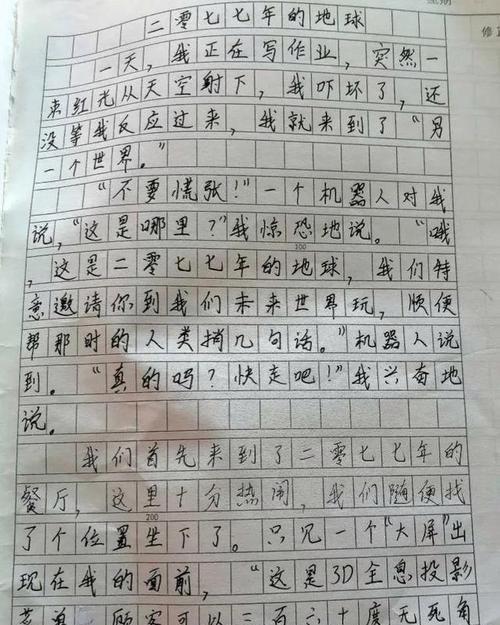 星期
修正
二零七七年的地球
一天，我正在写作业，突然一
束红光从天空射下，我吓坏了，还
没等我反应过来，我就来到了“另
一个世界。”
“不要慌张！”一个机器人对我
说，“这是哪里？”我惊恐地说。“哦
100
，这是二零七七年的地球，我们特
意邀请你到我们未来世界玩，顺便
帮那时的人类捎几句话。”机器人说
到。“真的吗？快走吧！”我兴奋地
说。
我们首先来到了二零七七年的
餐厅，这里十分热闹，我们随便找
200
了个位置坐下了。只见一个“大屏”出
现在我的面前，“这是3D全息投影
菜单，顾客可以三百六十度无死角